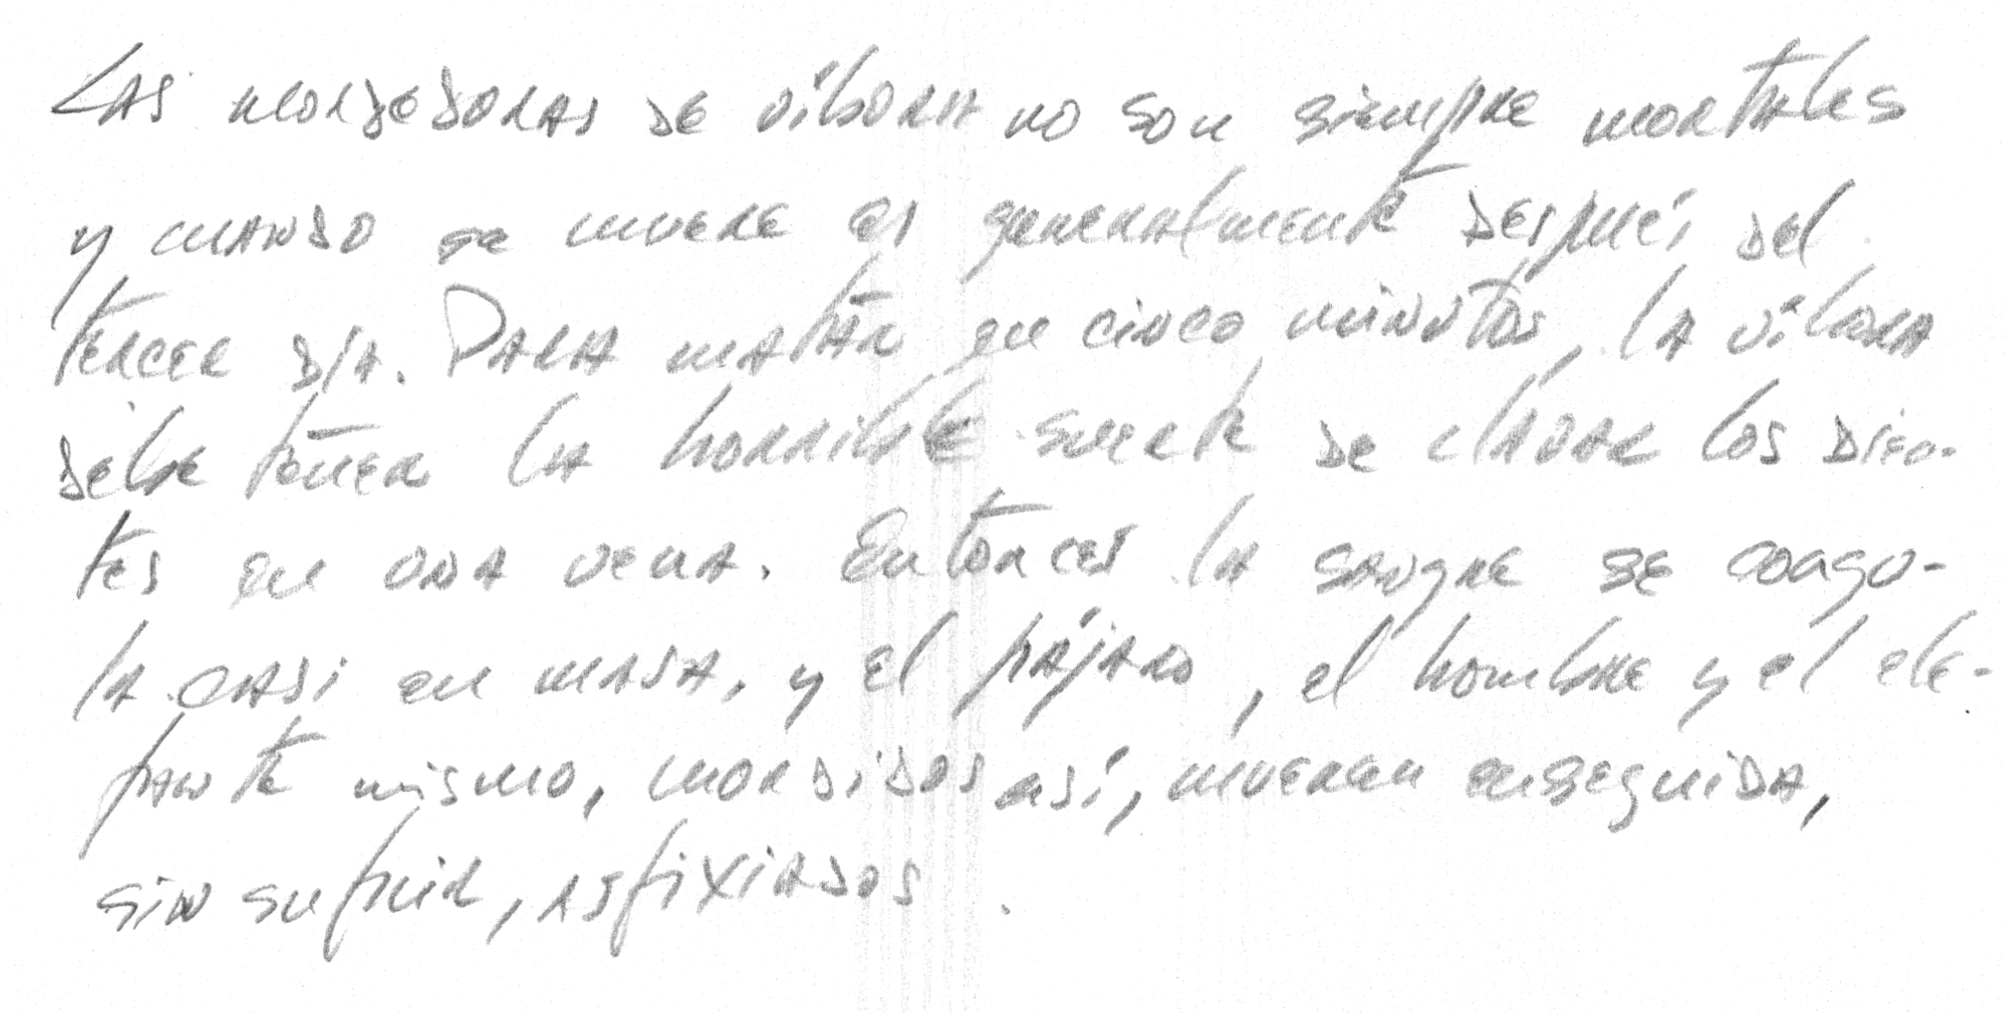 Las mordeduras de víbora no son siempre mortales
y cuando se muere es generalmente después del
tercer día. Para matar en cinco minutos, la víbora
debe tener la horrible suerte de clavar los dien-
tes en una vena. Entonces la sangre se coagu-
la casi en masa, y el pájaro, el hombre y el ele-
fante mismo, mordidos así, mueren enseguida,
sin sufrir, asfixiados.